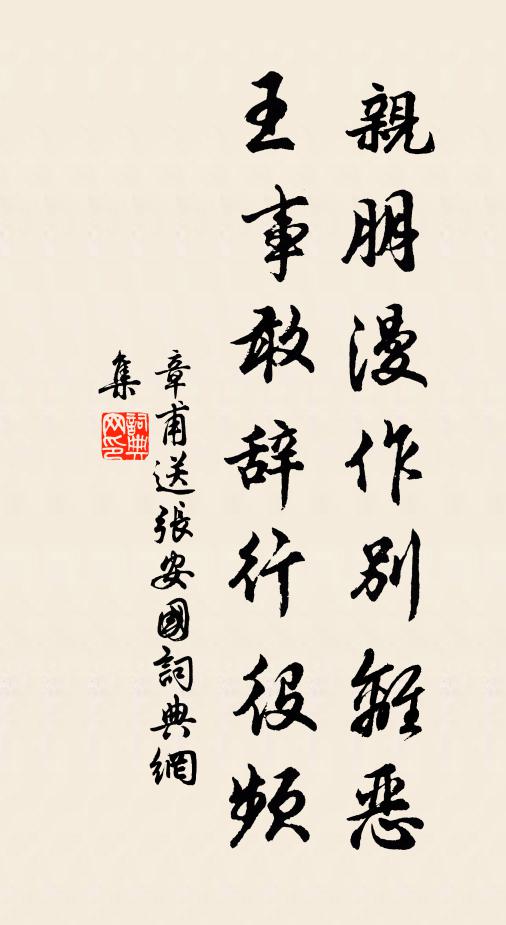 親朋漫作別離惡
王事敢辞行役頻
章甫送張安國詞典網
集
詞典
网印